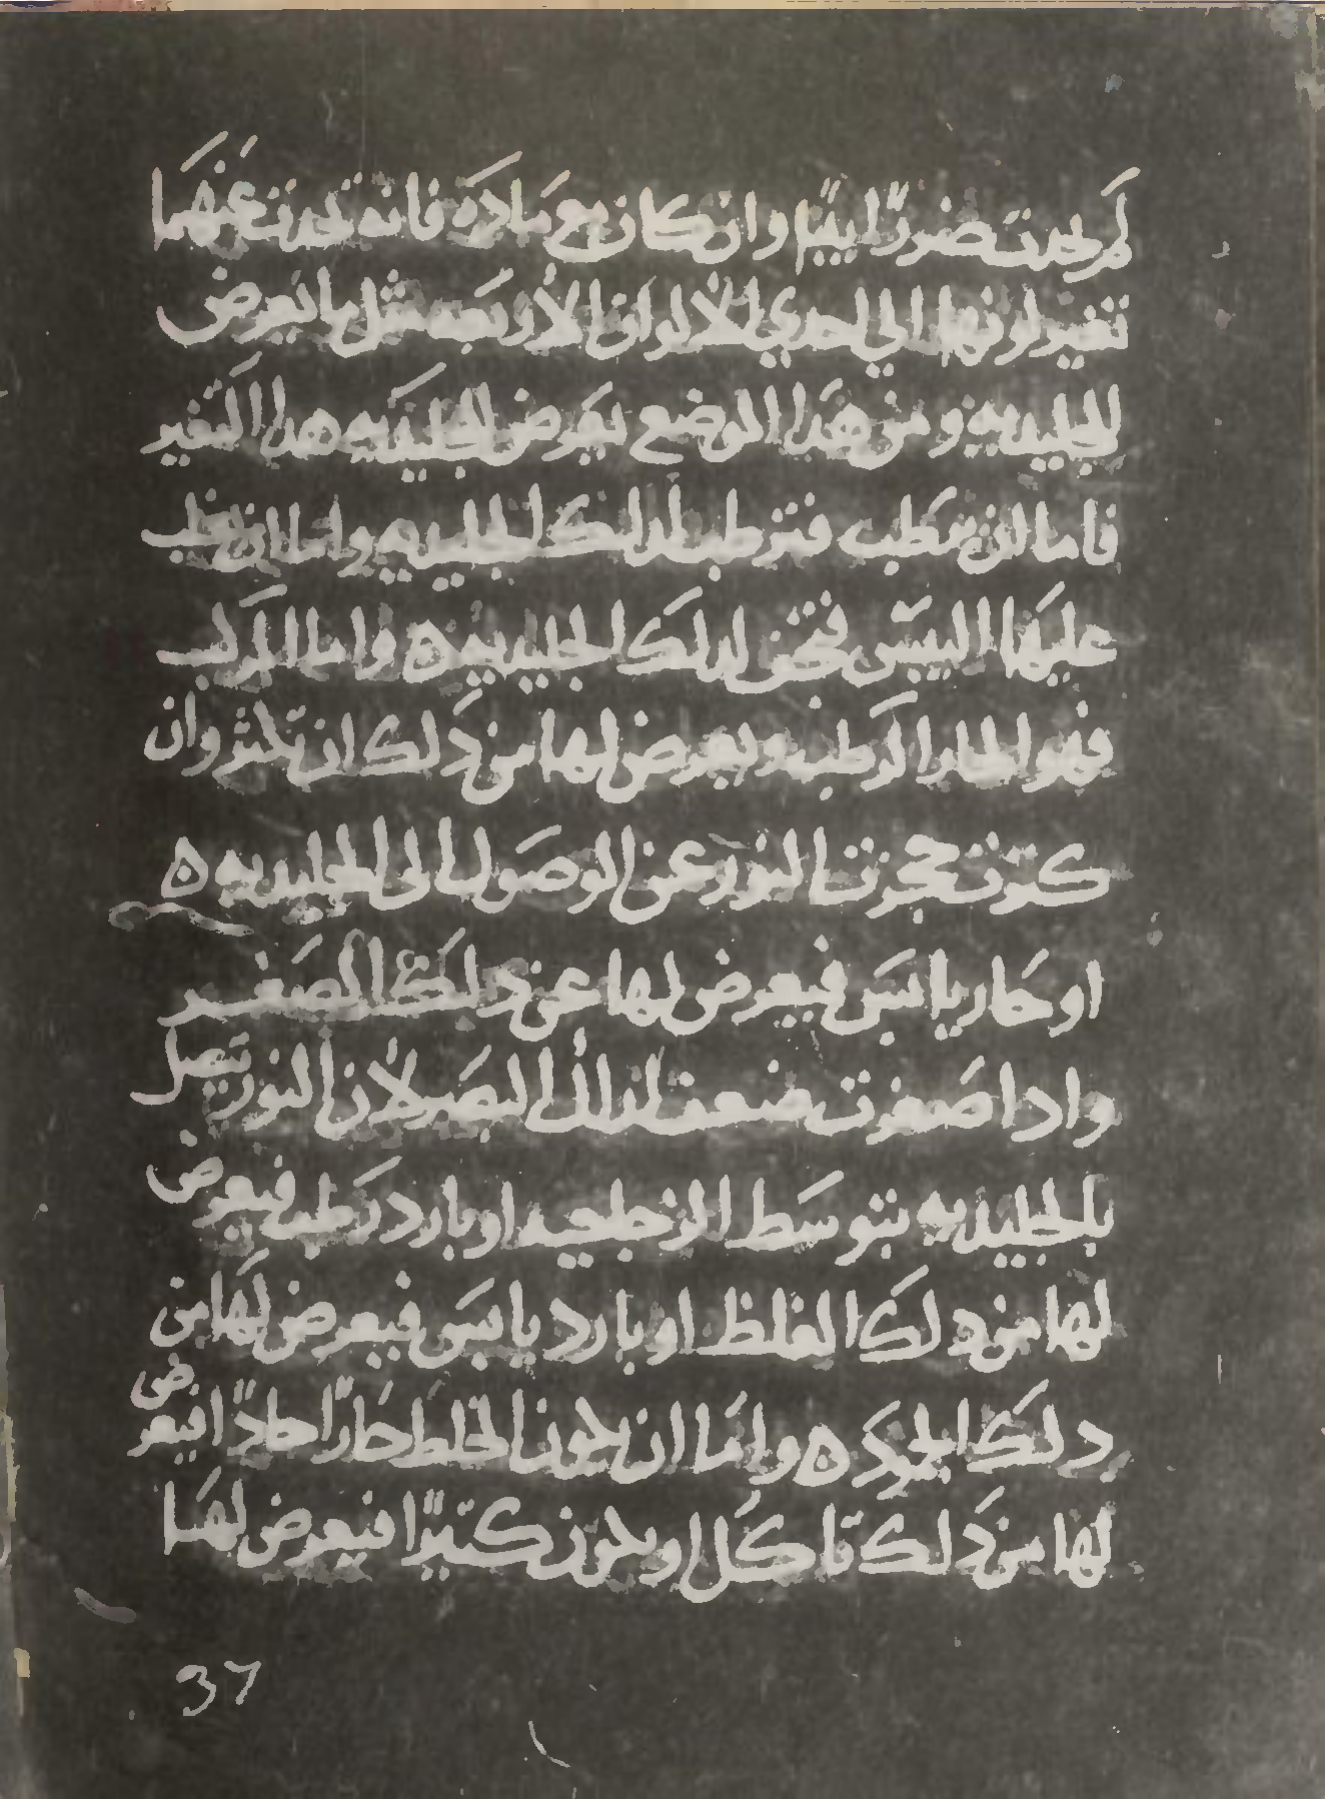 لم يحدث ضررا بينا وان كان مع مادة فانه يحدث عنهما
تغير لونها الي احدي الالوان الأربعه مثل ما يعرض
للجليديه ومن هذا الموضع يعرض للجليديه هذا التغير
فاما ان ترطب فترطب لذلك الجليديه واما ان يغلب
عليها اليبس فتخن لذلك الجليديه ه واما المركب
فهو الحار الرطب ويعرض لها من ذلك ان تكثر وان
كثرت حجزت النور عن الوصول الى الجليديه ه
او حار يابس فيعرض لها عن ذلك الصغر
واذا صغرت ضعف لذلك البصر لان النور يتصل
بالجليديه بتوسط الزجاجيه او بارد رطب فيعرض
لها من ذلك الغلظ او بارد يابس فيعرض لها من
ذلك الجمود ه واما ان يكون الخلط حارا حادا فيعرض
لها من ذلك تاكل او يكون كثيرا فيعرض لها
37